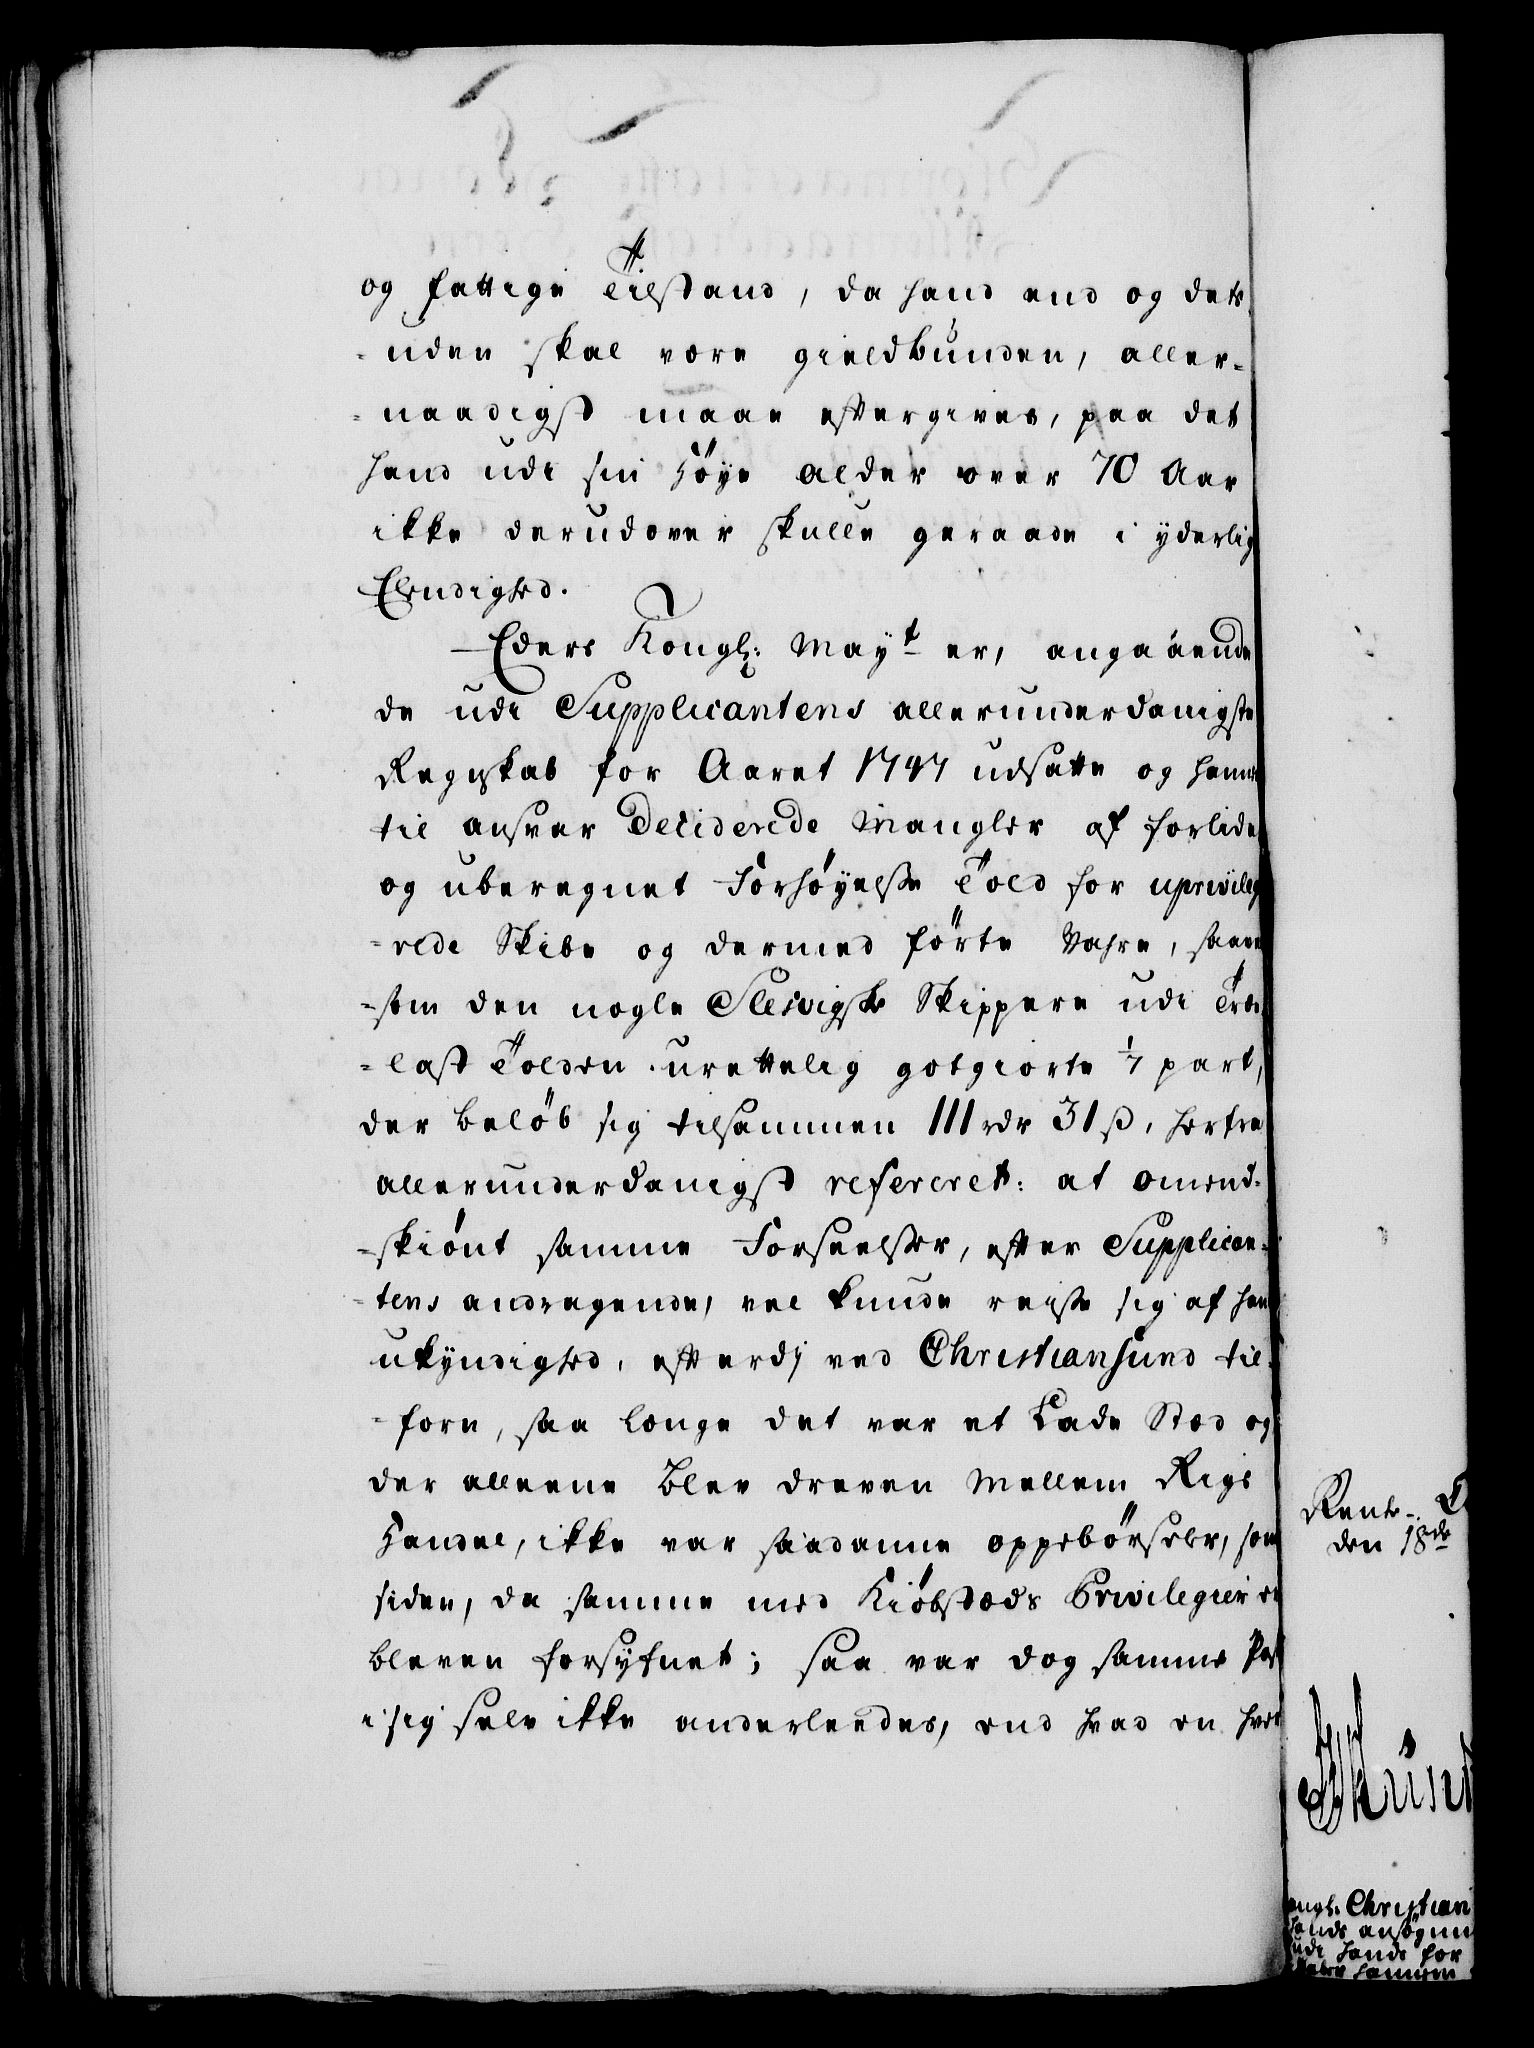 og fattige Tilstand, da hand end og des
-uden skal være gieldbunden, aller-
-naadigst maae eftergives, paa det
hand udi sin høye alder over 70 Aar
ikke derudover skulle geraade i yderlig
Elendighed.
Eders Kongl: Mayt er, angaaende
de udi Supplicantens allerunderdanigste
Regnskab for Aaret 1747 udsatte og ham
til ansvar Deciderede Mangler af forlidet
og uberegnet Forhøyelse Told for uprivileg
-rede Skibe og dermed førte Vahre, saavel
-som den nogle Slesvigske Skippere udi Træ-
-last Tolden urettelig gotgiorte 1/7 part,
der beløb sig tilsammen 111 rdr 31 ß, herfra
allerunderdanigst refereret: at omend-
-skiønt samme Forseelser, efter Supplican-
-tens andragende, vel kunde reise sig af hans
ukyndighed, efterdj ved Christiansund til-
-forn, saa længe det var et Lade Stæd og
der alleene blev dreven Mellem Rigs
Handel, ikke var saadanne oppebørseler, som
siden, da samme med Kiøbstæds Privilegier er
bleven forsÿnet; saa var dog samme Post
i sig selv ikke anderleedes, end hvad en hver
Rente-
den 18de
Christian
hands ansøgni
udi hands for
hannem